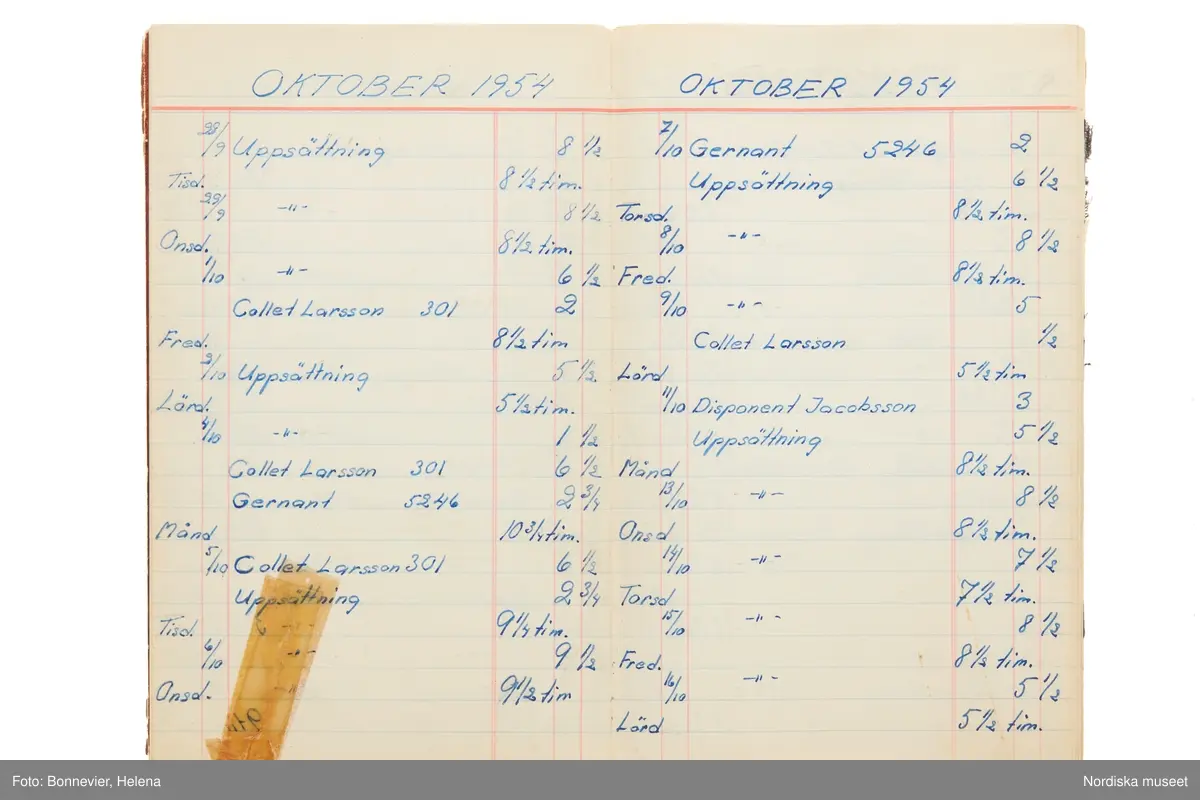 OKTOBER 1954
28/9 Uppsättning 8 1/2
Tisd. 8 1/2 tim.
29/9 -"- 8 1/2
Onsd. 8 1/2 tim.
1/10 -"- 6 1/2
Collet Larsson 301 2
Fred. 8 1/2 tim
2/10 Uppsättning 5 1/2
Lörd. 5 1/2 tim.
4/10 -"- 1 1/2
Collet Larsson 301 6 1/2
Gernant 5246 2 3/4
Månd 10 3/4 tim.
5/10 Collet Larsson 301 6 1/2
Uppsättning 2 3/4
Tisd. 9 1/4 tim.
6/10 -"- 9 1/2
Onsd. 9 1/2 tim
OKTOBER 1954
7/10 Gernant 5246 2
Uppsättning 6 1/2
Torsd. 8 1/2 tim.
8/10 -"- 8 1/2
Fred. 8 1/2 tim.
9/10 -"- 5
Collet Larsson 1/2
Lörd 5 1/2 tim
11/10 Disponent Jacobsson 3
Uppsättning 5 1/2
Månd 8 1/2 tim.
13/10 -"- 8 1/2
Onsd 8 1/2 tim.
14/10 -"- 7 1/2
Torsd 7 1/2 tim.
15/10 -"- 8 1/2
Fred. 8 1/2 tim.
16/10 -"- 5 1/2
Lörd 5 1/2 tim.
Foto: Bonnevier, Helena
Nordiska museet